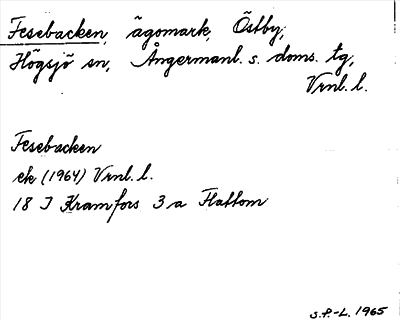 Fesebacken, ägomark, Östby,
Högsjö sn, Ångermanl. s. doms. tg,
Vrnl. l.
Fesebacken
ek (1964) Vrnl. l.
18 I Kramfors 3 a Flattom
S.P.-L. 1965